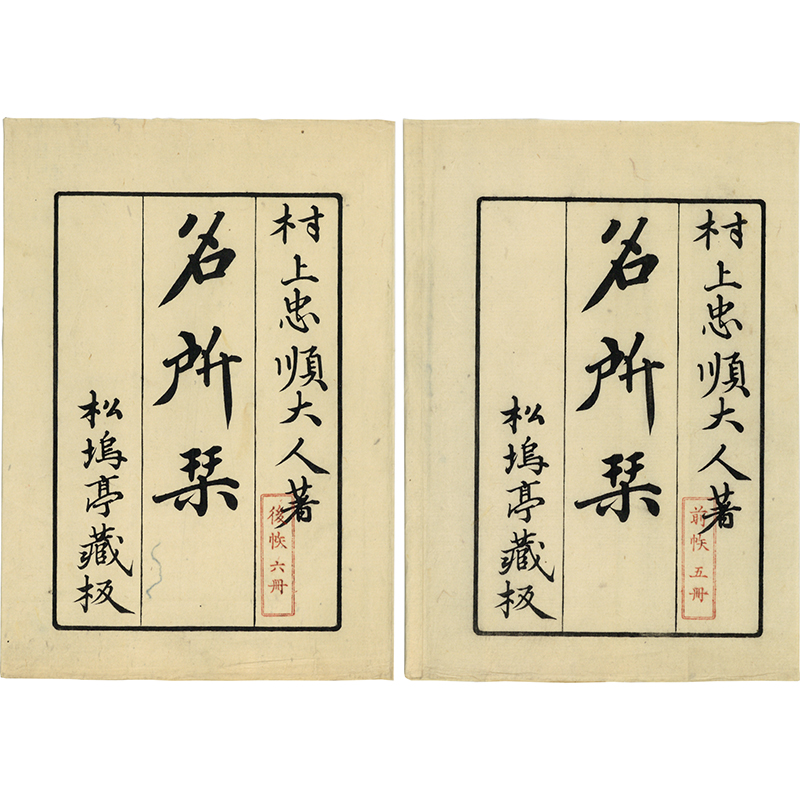 村上忠順大人著
前帙五冊
名所栞
松塢亭藏板
村上忠順大人著
後帙六冊
名所栞
松塢亭藏板